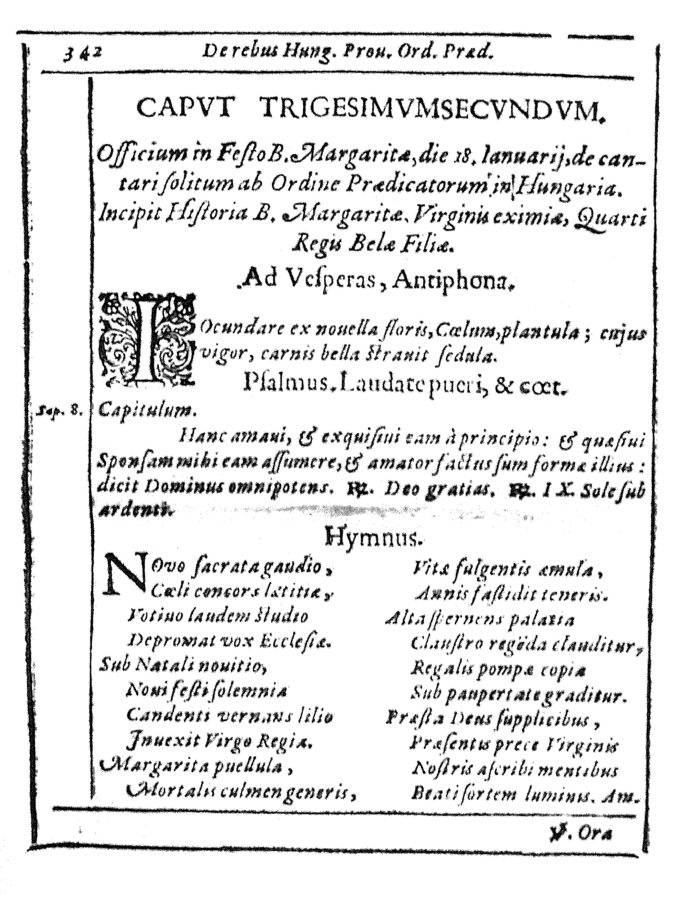 342 De rebus Hung. Prou. Ord. Præd.
CAPVT TRIGESIMVMSECVNDVM.
Officium in Feſto B. Margaritæ, die 18. Ianuarij, de can-
tari ſolitum ab Ordine Prædicatorum in Hungaria.
Incipit Hiſtoria B. Margaritæ, Virginis eximiæ, Quarti
Regis Belæ Filiæ.
Ad Veſperas, Antiphona.
IOcundare ex nouella floris, Cœlum, plantula; cujus
vigor, carnis bella ſtrauit ſedula.
Pſalmus. Laudate pueri, & cœt.
Sap. 8. Capitulum.
Hanc amaui, & exquiſiui eam à principio: & quæſiui
Sponſam mihi eam aſſumere, & amator factus ſum formæ illius:
dicit Dominus omnipotens. ℟. Deo gratias. ℟. IX. Sole ſub
ardenti.
Hymnus.
NOvo ſacrata gaudio,
Cœli concors lætitiæ,
Votiuo laudem ſtudio
Depromat vox Eccleſiæ.
Sub Natali nouitio,
Noui feſti ſolemnia
Candenti vernans lilio
Inuexit Virgo Regia.
Margarita puellula,
Mortalis culmen generis,
Vitæ fulgentis æmula,
Annis faſtidit teneris.
Alta ſpernens palatia
Clauſtro regēda clauditur,
Regalis pompæ copia
Sub paupertate graditur.
Præſta Deus ſupplicibus,
Præſentis prece Virginis
Noſtris aſcribi mentibus
Beati ſortem luminis. Am.
℣. Ora